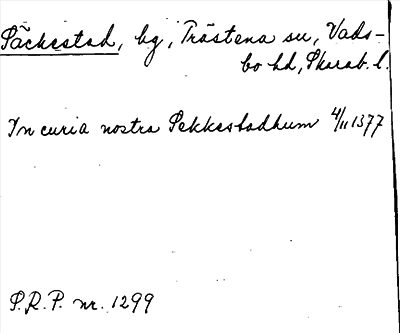 Säckestad, bg, Trästena sn, Vads-
bo hd, Skarab. l.
In curia nostra Sekkestadhum 4/11 1377
S.R.P. nr. 1299